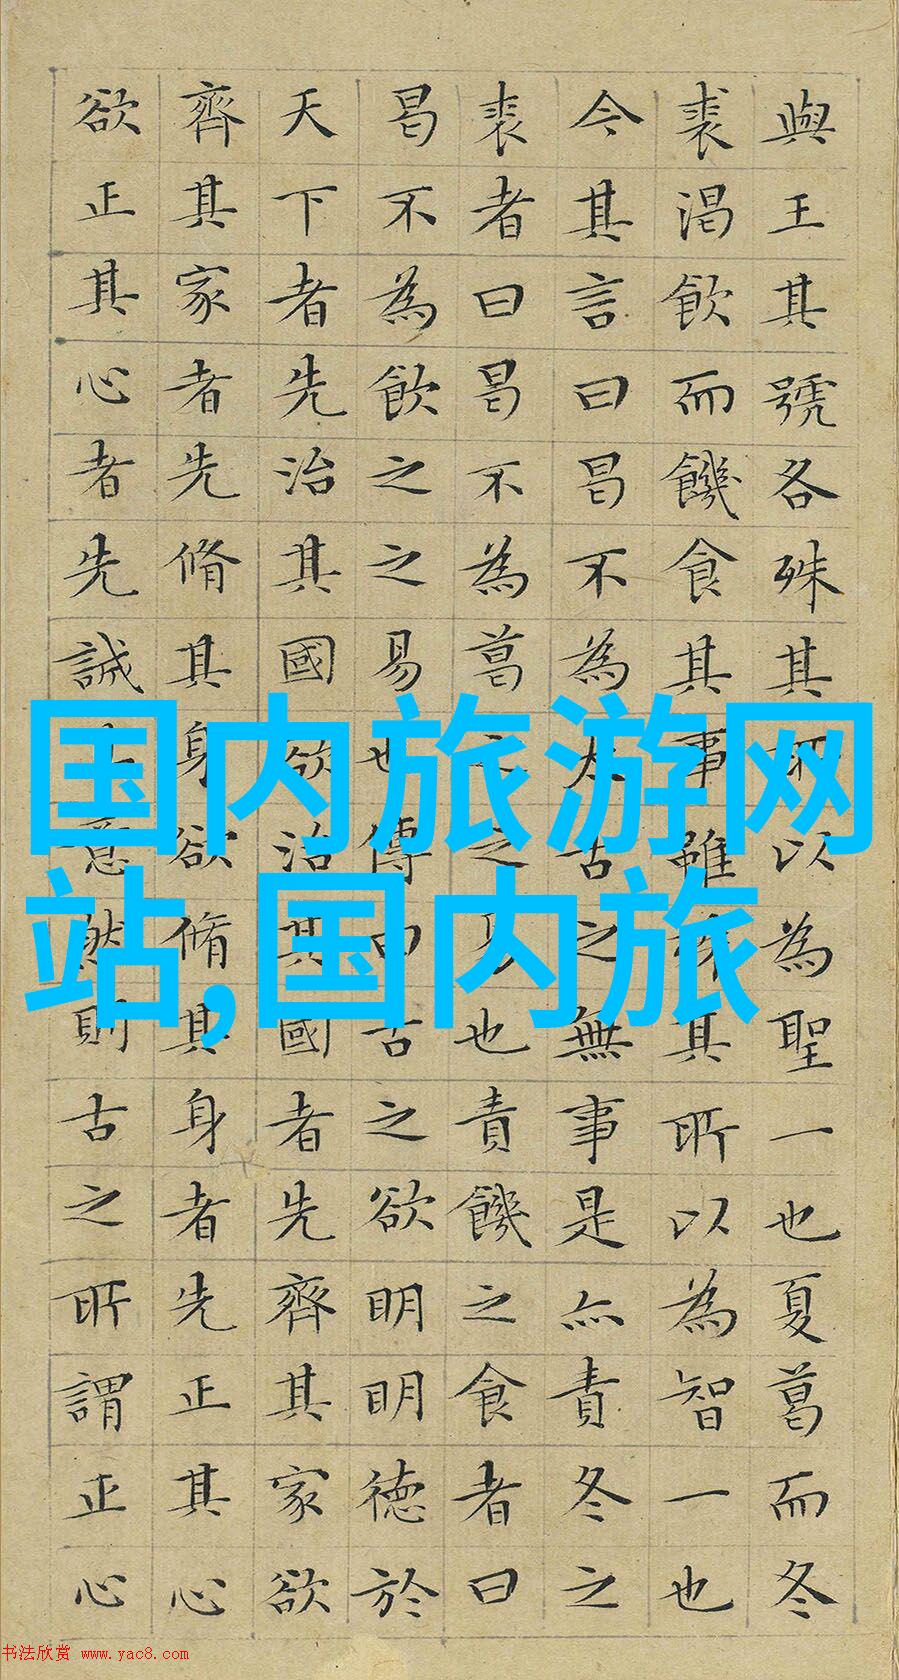 與王其號各殊其所以為聖一也夏葛而冬
裘渴飲而饑食其事雖殊其所以為智一也
今其言曰曷不為太古之無事是亦責冬之
裘者曰曷不為葛之之易也責饑之食者曰
曷不為飲之之易也傳曰古之欲明明德於
天下者先治其國欲治其國者先齊其家欲
齊其家者先脩其身欲脩其身者先正其心
欲正其心者先誠其意然則古之所謂正心
国内旅游网
站,国内旅
书法欣赏 www.yac8.com